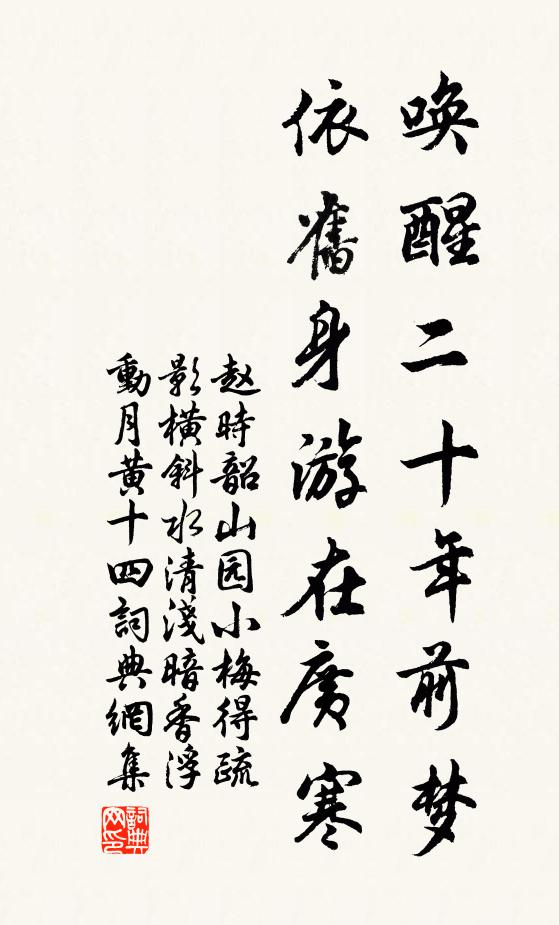 唤醒二十年前梦
依舊身游在廣寒
赵時韶山园小梅得疏
影横斜水清淺暗香浮
動月黄十四詞典網集
詞典网印